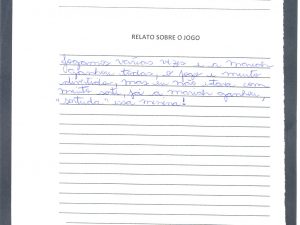 RELATO SOBRE O JOGO
Jogamos várias vezes e a Mariah
ganhou todas, o jogo é muito
divertido, mas eu não estava com
muita sorte, já a Mariah ganhou,
"sortuda" essa menina!